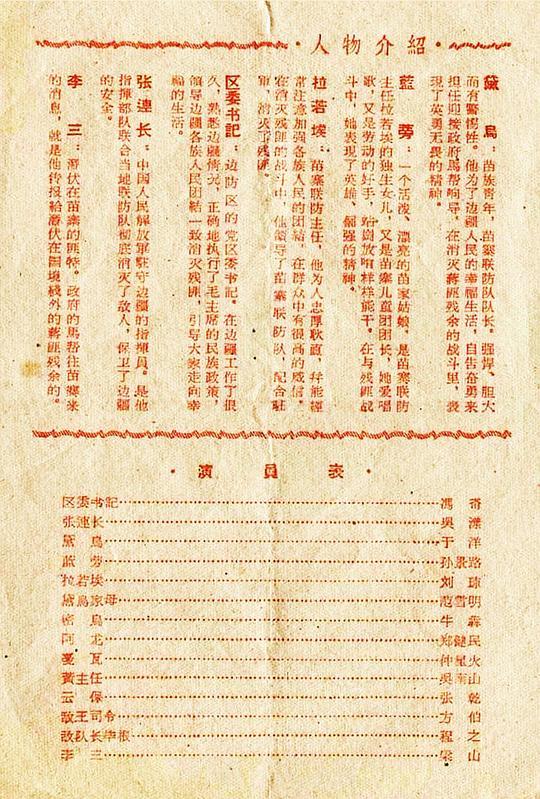 ·人物介紹·
黛 烏：苗族青年，苗寨联防队队长。强悍、胆大
而有警惕性。他为了边疆人民的幸福生活，自告奋勇来
担任迎接政府馬帮响导，在消灭蒋匪残余的战斗里，表
現了英勇无畏的精神。
藍 蒡：一个活泼、漂亮的苗家姑娘，是苗寨联防
主任拉若埃的独生女儿，又是苗寨儿童团团长，她爱唱
歌，又是劳动的好手，放哨样样能干。在与残匪战
斗中，她表現了英雄、倔强的精神。
拉若埃：苗寨联防主任，他为人忠厚耿直，幷能經
常注意加强各族人民的团結，在群众中有很高的威信。
在消灭残匪的战斗中，他領导了苗寨联防队，配合駐
軍，消灭了残匪。
区委书記：边防区的党区委书記。在边疆工作了很
久，熟悉边疆情况，正确地执行了毛主席的民族政策，
領导边疆各族人民团結一致消灭残匪，引导大家走向幸
福的生活。
张連长：中国人民解放軍駐守边疆的指揮員。是他
指揮部队联合当地联防队彻底消灭了敌人，保卫了边疆
的安全。
李 三：潜伏在苗寨的匪特。政府的馬帮往苗乡来
的消息，就是他传报給潜伏在国境綫外的蒋匪残余的。
·演員表·
区委书記……馮 奇
张連长……吳 漾
黛 烏……于 洋
蓝 蒡……孙景路
拉若埃……刘 琼
黛烏家母……范雪明
密 烏……牛 犇
阿 龙……郑健民
戛 瓦……仲星火
黃主任……吳南山
云 保……张 乾
敌司令……方 伯
敌队长……程 之
李 三……梁 山